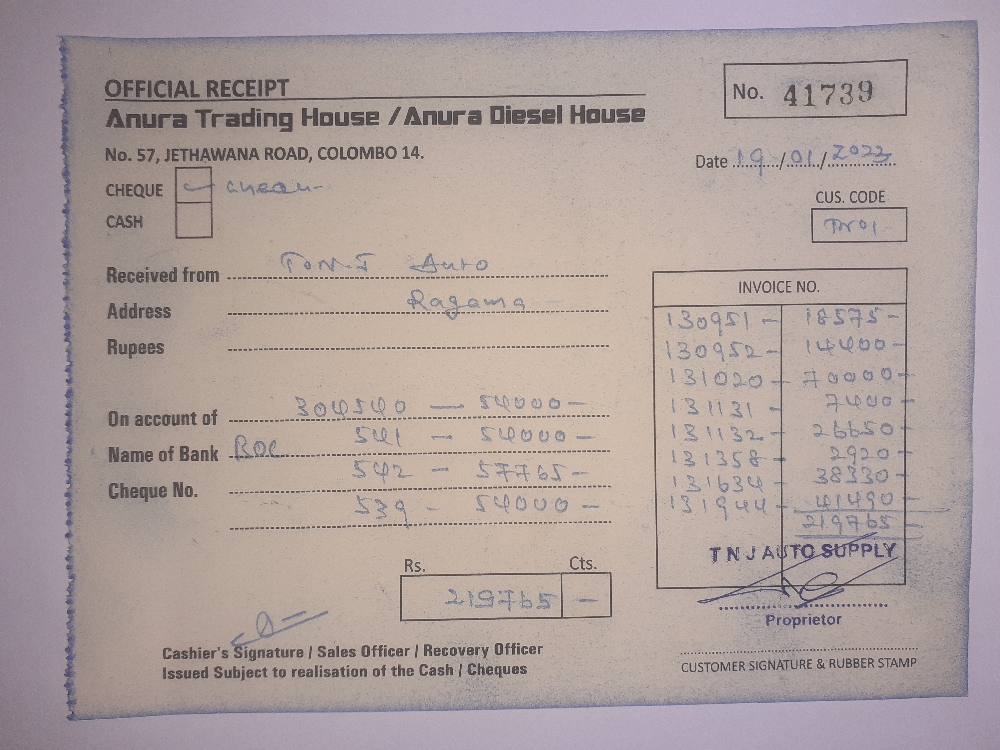 OFFICIAL RECEIPT
Anura Trading House / Anura Diesel House
No. 41739
No. 57, JETHAWANA ROAD, COLOMBO 14.
Date 19/01/2023
CHEQUE
CASH
CUS. CODE
Received from Auto
Address Ragama
Rupees
On account of 304540 — 54000 —
541 — 54000 —
Name of Bank BOC
542 — 57765 —
Cheque No.
539 — 54000 —
INVOICE NO.
130951 — 18575 —
130952 — 14400 —
131020 — 70000 —
131131 — 7400 —
131132 — 26650 —
131358 — 2920 —
131634 — 38330 —
131944 — 41490 —
219765 —
T N J AUTO SUPPLY
Proprietor
Rs. Cts.
219765 —
Cashier's Signature / Sales Officer / Recovery Officer
Issued Subject to realisation of the Cash / Cheques
CUSTOMER SIGNATURE & RUBBER STAMP